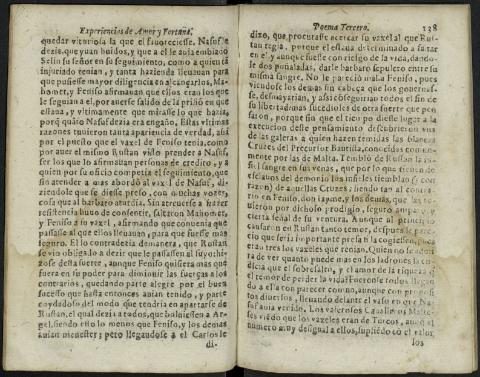 Experiencias de Amor y Fortuna.
quedar vitoriosa la que el fauoreciesse. Nasuf le
dezia, que yuan huidos, y que a el le auia embiado
Selin su señor en su seguimiento, como a quien tã
injuriado tenian, y tanta hazienda lleuauan para
que pusiesse mayor diligencia en alcançarlos, Ma-
homet, y Feniso afirmauan que ellos eran los que
le seguian a el, por auerse salido de la prisiõ en que
estaua, y vltimamente que mirasse lo que hazia
porq̃ quiẽo Nasuf dezia era engaño. Estas vltimas
razones tuuieron tanta apariencia de verdad, assi
por el puesto que el vaxel de Feniso tenia, como
por auer el mismo Rustan visto prender a Nasuf,
ser los que lo afirmauan personas de credito, y a
quien por su oficio competia el seguimiento, que
sin atender a mas abordò al vaxel de Nasuf, di-
ziendole que se diesse preso, con muchas vozes,
cosa que al barbaro aturdia. Sin atreuerse a hazer
resistencia huuo de consentir, saltaron Mahomet,
y Feniso a su vaxel, afirmando que conuenia que
passasse al que ellos lleuauan, para que fuesse mas
seguro. El lo contradezia de manera, que Rustan
se vio obligado a dezir que le passassen al suyo: hi-
zose desta suerte, aunque Feniso quisiera mas que
fuera en su poder para diminuir las fuerças a los
contrarios, quedando parte alegre por el buen
sucesso que hasta entonces auian tenido, y parte
cuydadoso del modo que tendria en apartarse de
Rustan, el qual dezia a todos, que boluiessen a Ar-
gel, siendo esto lo menos que Feniso, y los demas
auian menester; pero llegandose a el Carlos le
di-
Poema Tercero. 138
dixo, que procurasse acercar su vaxel al que Rus-
tan regia, porque el estaua determinado a saltar
en el y aunque fuesse con riesgo de la vida, dando-
le dos puñaladas, darle barbaro sepulcro entre su
misma sangre. No le pareciò mal a Feniso, pues
viendose los demas sin cabeça que los gouernas-
se, desmayarian, y assi conseguirian todos el fin de
su libertad: mas sucedioles de otra suerte que pen-
saron, porque sin que el tiẽpo diesse lugar a la
execucion deste pensamiento descubrieron vnas
de las galeras a quien hazen temidas las blancas
Cruzes del Precursor Bautista, conocidas comun-
mente por las de Malta. Temblò de Rustan la in-
fiel sangre en sus venas, que por lo que tienen de
esclauos del demonio los infieles tiemblan (y con
razon) de aquellas Cruzes; siendo tan al contra-
rio en Feniso, don Iayme, y los demas, que las tu-
uieron por dichoso prodigio, seguro amparo, y
cierta señal de su ventura. Aunque al principio
causaron en Rustan tanto temor, despues le pare-
cio que seria importante presa si la cogiessen, pues
eran tres los vaxeles que tenian. Quien no se admi-
ra de ver quanto puede mas en los ladrones la co-
dicia que el sobresalto, y el amor de la riqueza q̃
el temor de perder la vida? Fueronse todos llegan-
do a ella con parecer comun, aunque con proposi-
tos diuersos, lleuando delante el vaso en que Na-
suf auia venido. Los valerosos Caualleros Malte-
ses viẽdo que los vaxeles eran de Turcos, aunq̃ el
numero muy desigual a ellos, supliẽdo cõ el valor
los